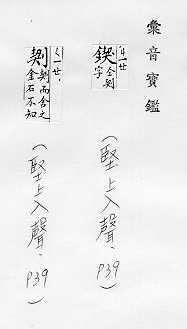 彙音寶鑑
ㄐㄧㄝ
鍥 仝剝
字
(堅上入聲, P39)
ㄑㄧㄝ,
剝 剝而舍之
金石不知
(堅上入聲, P39)